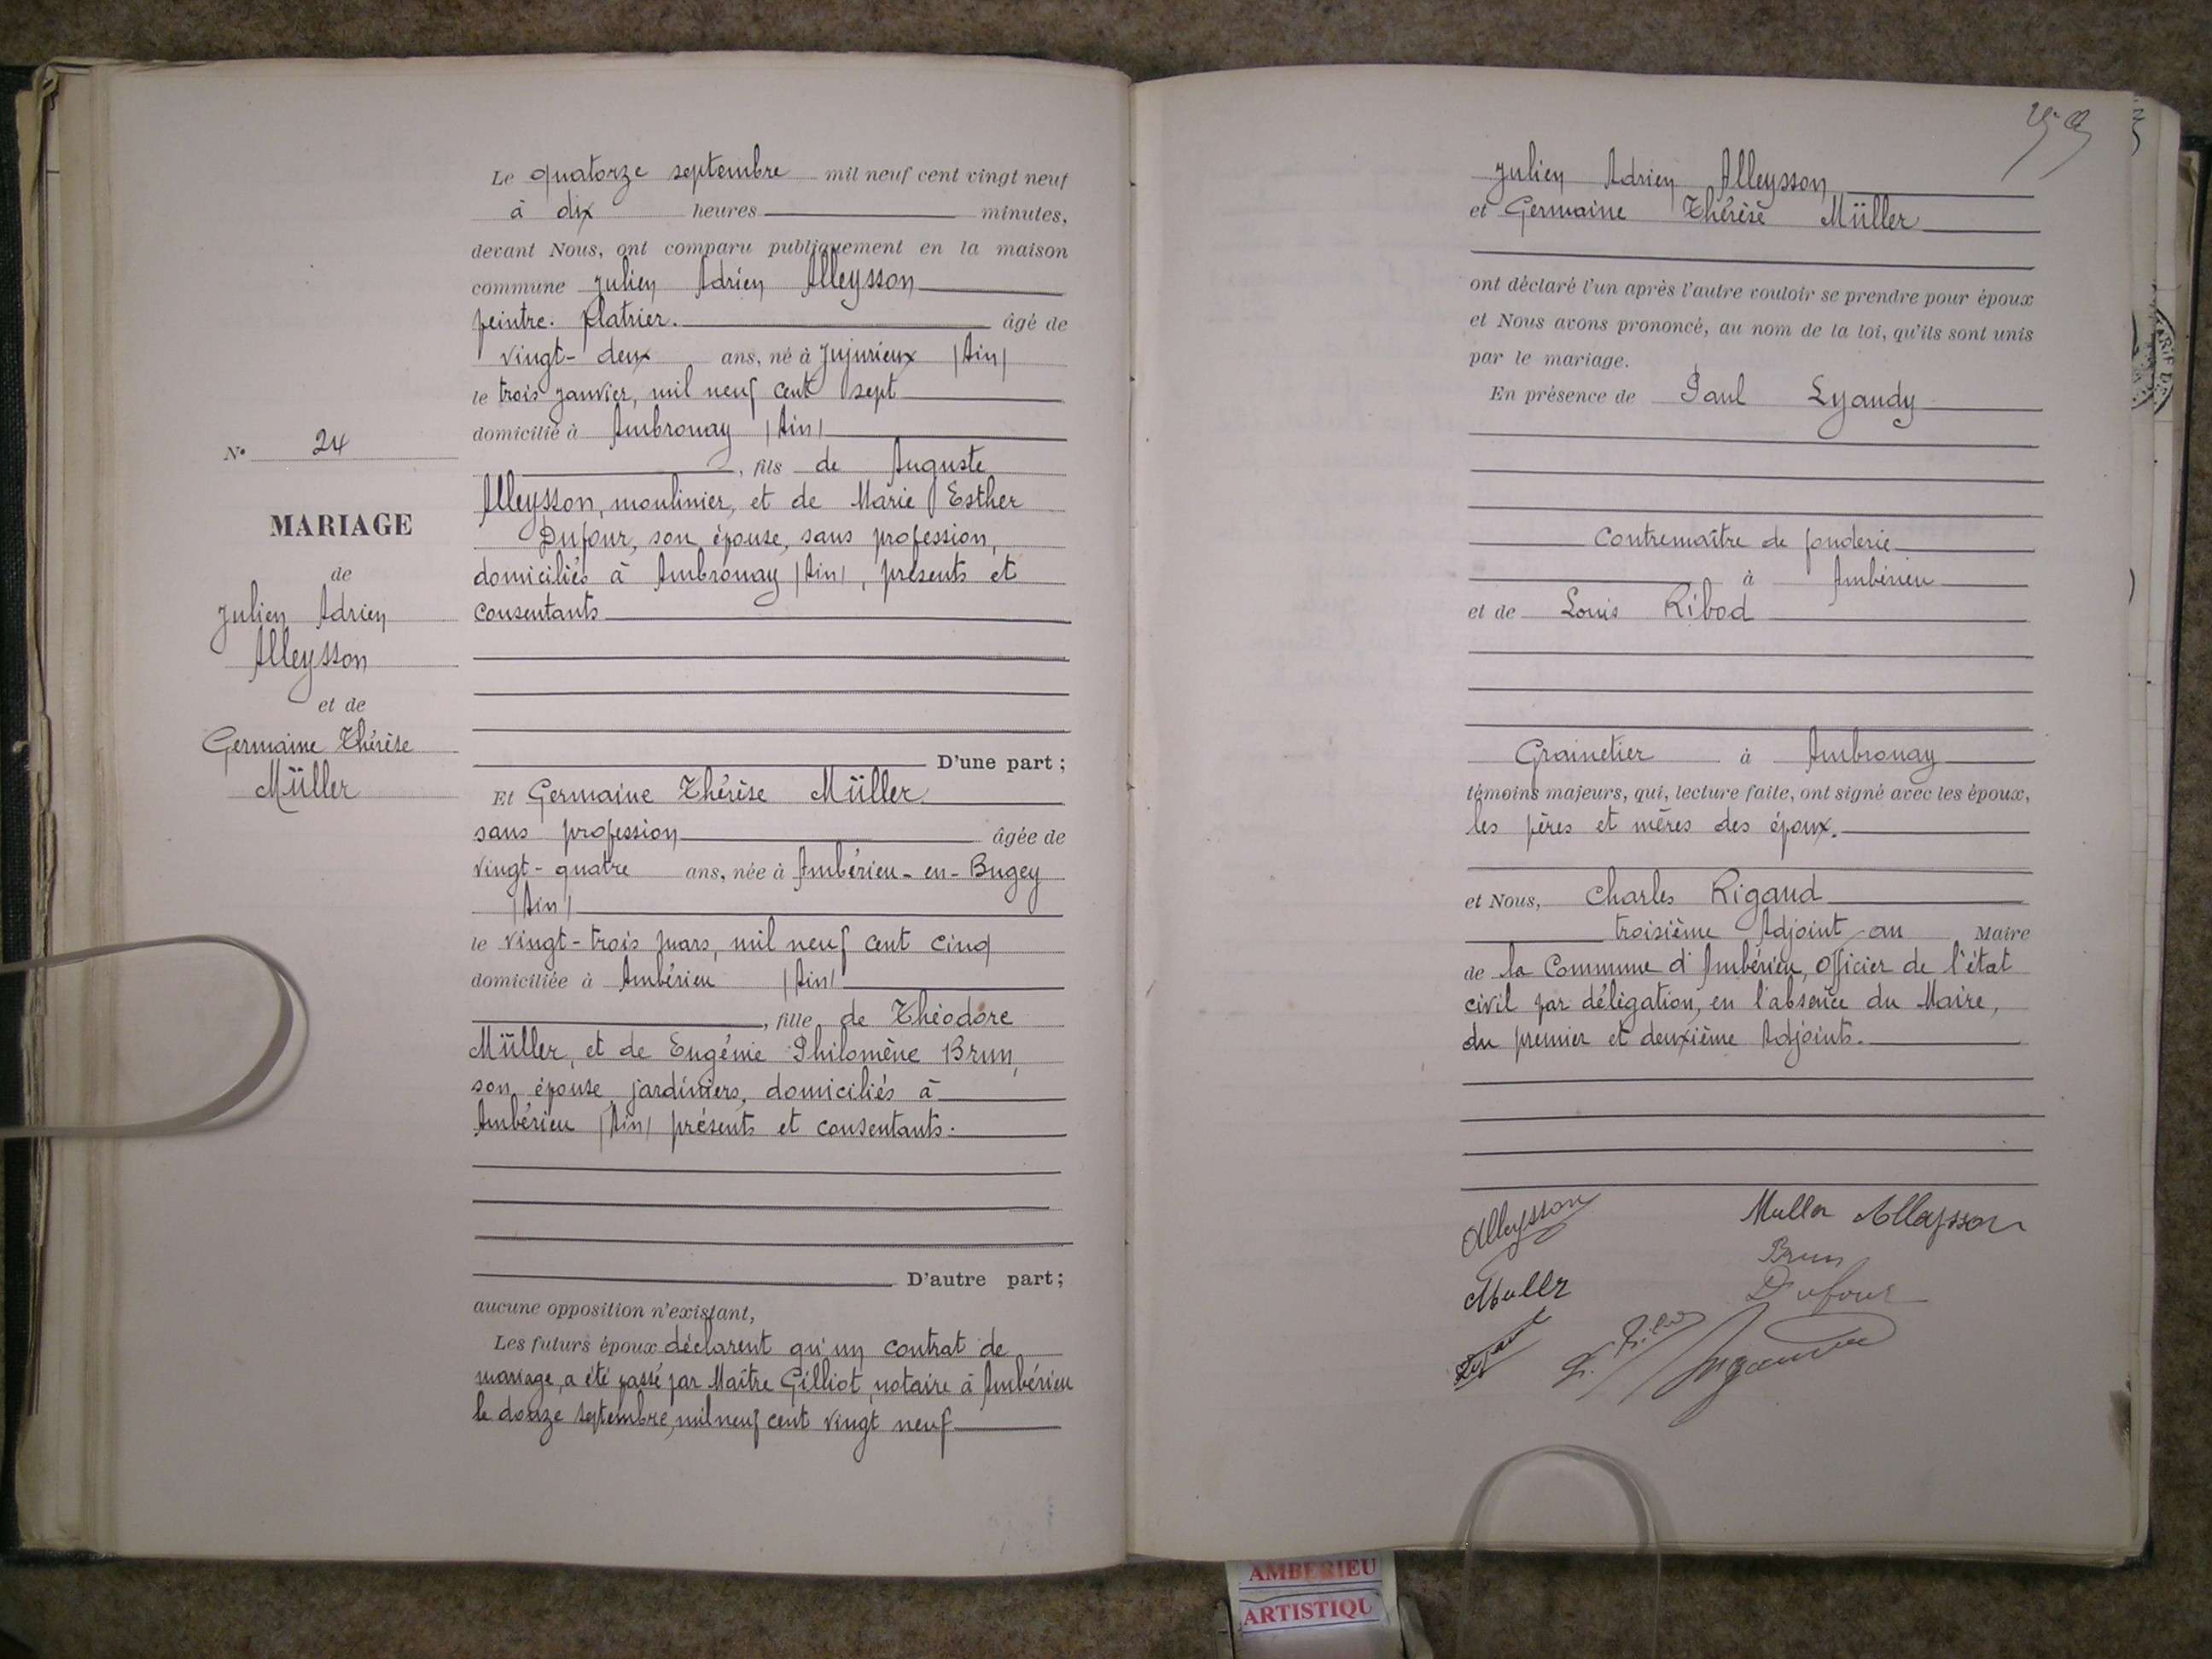 N° 24
MARIAGE
de
Julien Adrien
Alleysson
et de
Germaine Thérèse
Müller
Le quatorze septembre mil neuf cent vingt neuf
à dix heures minutes,
devant Nous, ont comparu publiquement en la maison
commune Julien Adrien Alleysson
peintre. platrier. âgé de
vingt-deux ans, né à Jujurieux (Ain)
le trois janvier, mil neuf cent sept
domicilié à Ambronay (Ain)
, fils de Auguste
Alleysson, moulinier, et de Marie Esther
Dufour, son épouse, sans profession,
domiciliés à Ambronay (Ain), présents et
consentants
D'une part ;
Et Germaine Thérèse Müller
sans profession âgée de
vingt-quatre ans, née à Ambérieu-en-Bugey
(Ain)
le vingt-trois mars, mil neuf cent cinq
domiciliée à Ambérieu (Ain)
, fille de Théodore
Müller, et de Eugénie Philomène Brun,
son épouse, jardiniers, domiciliés à
Ambérieu (Ain) présents et consentants.
D'autre part ;
aucune opposition n'existant,
Les futurs époux déclarent qu'un contrat de
mariage, a été passé par Maître Gilliot, notaire à Ambérieu
le douze septembre, mil neuf cent vingt neuf
Julien Adrien Alleysson
et Germaine Thérèse Müller
ont déclaré l'un après l'autre vouloir se prendre pour époux
et Nous avons prononcé, au nom de la loi, qu'ils sont unis
par le mariage.
En présence de Paul Lyaudy
Contremaître de fonderie
à Ambérieu
et de Louis Ribod
Grainetier à Ambronay
témoins majeurs, qui, lecture faite, ont signé avec les époux,
les pères et mères des époux.
et Nous, Charles Rigaud
troisième Adjoint au Maire
de la Commune d'Ambérieu, Officier de l'état
civil par délégation, en l'absence du Maire,
du premier et deuxième Adjoints.
Alleysson Muller Alleysson
Brun
Muller Dufour
AMBERIEU
ARTISTIQU